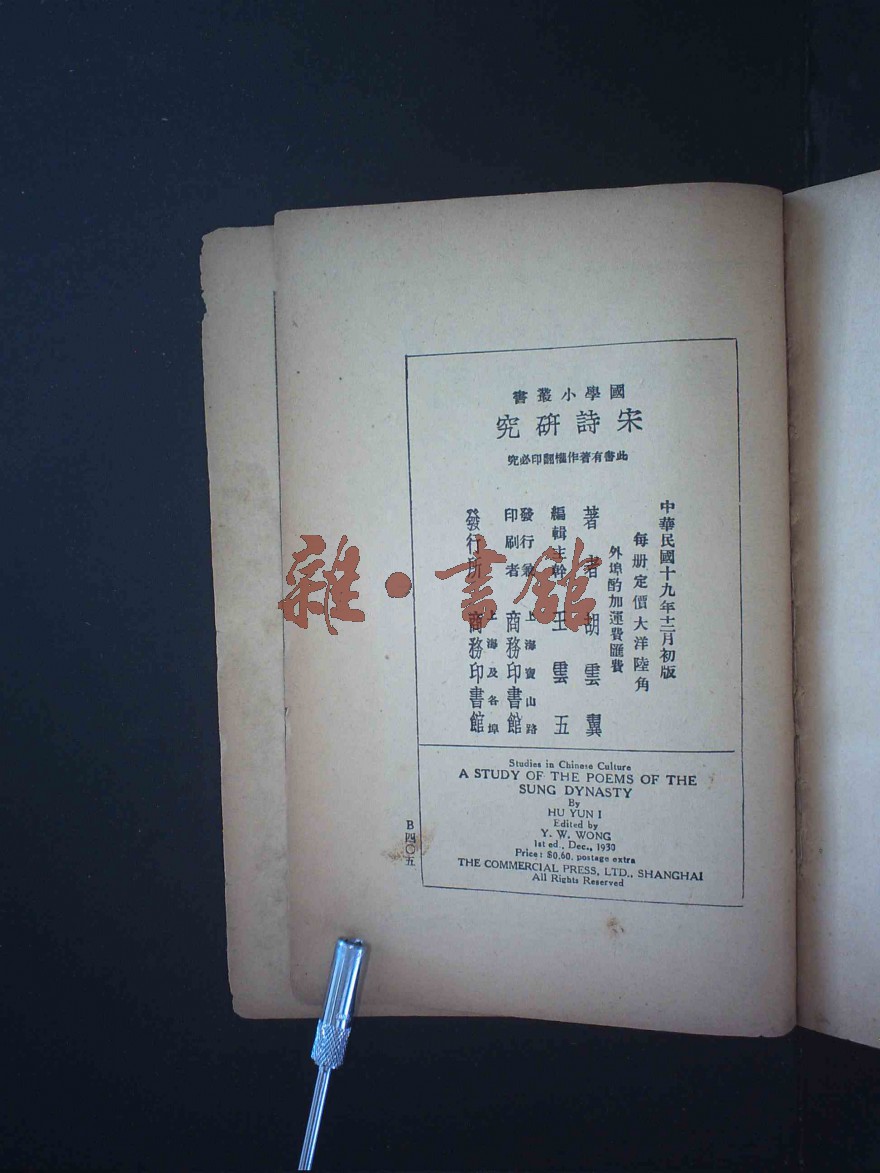 國學小叢書
宋詩硏究
此書有著作權翻印必究
中華民國十九年十二月初版
每册定價大洋陸角
外埠酌加運費匯費
著者 胡雲翼
編輯主幹 王雲五
發行兼印刷者 上海寶山路 商務印書館
發行所 上海及各埠 商務印書館
Studies in Chinese Culture
A STUDY OF THE POEMS OF THE
SUNG DYNASTY
By
HU YUN I
Edited by
Y. W. WONG
1st ed., Dec., 1930
Price: $0.60, postage extra
THE COMMERCIAL PRESS, LTD., SHANGHAI
All Rights Reserved
B四〇五
雜·書館